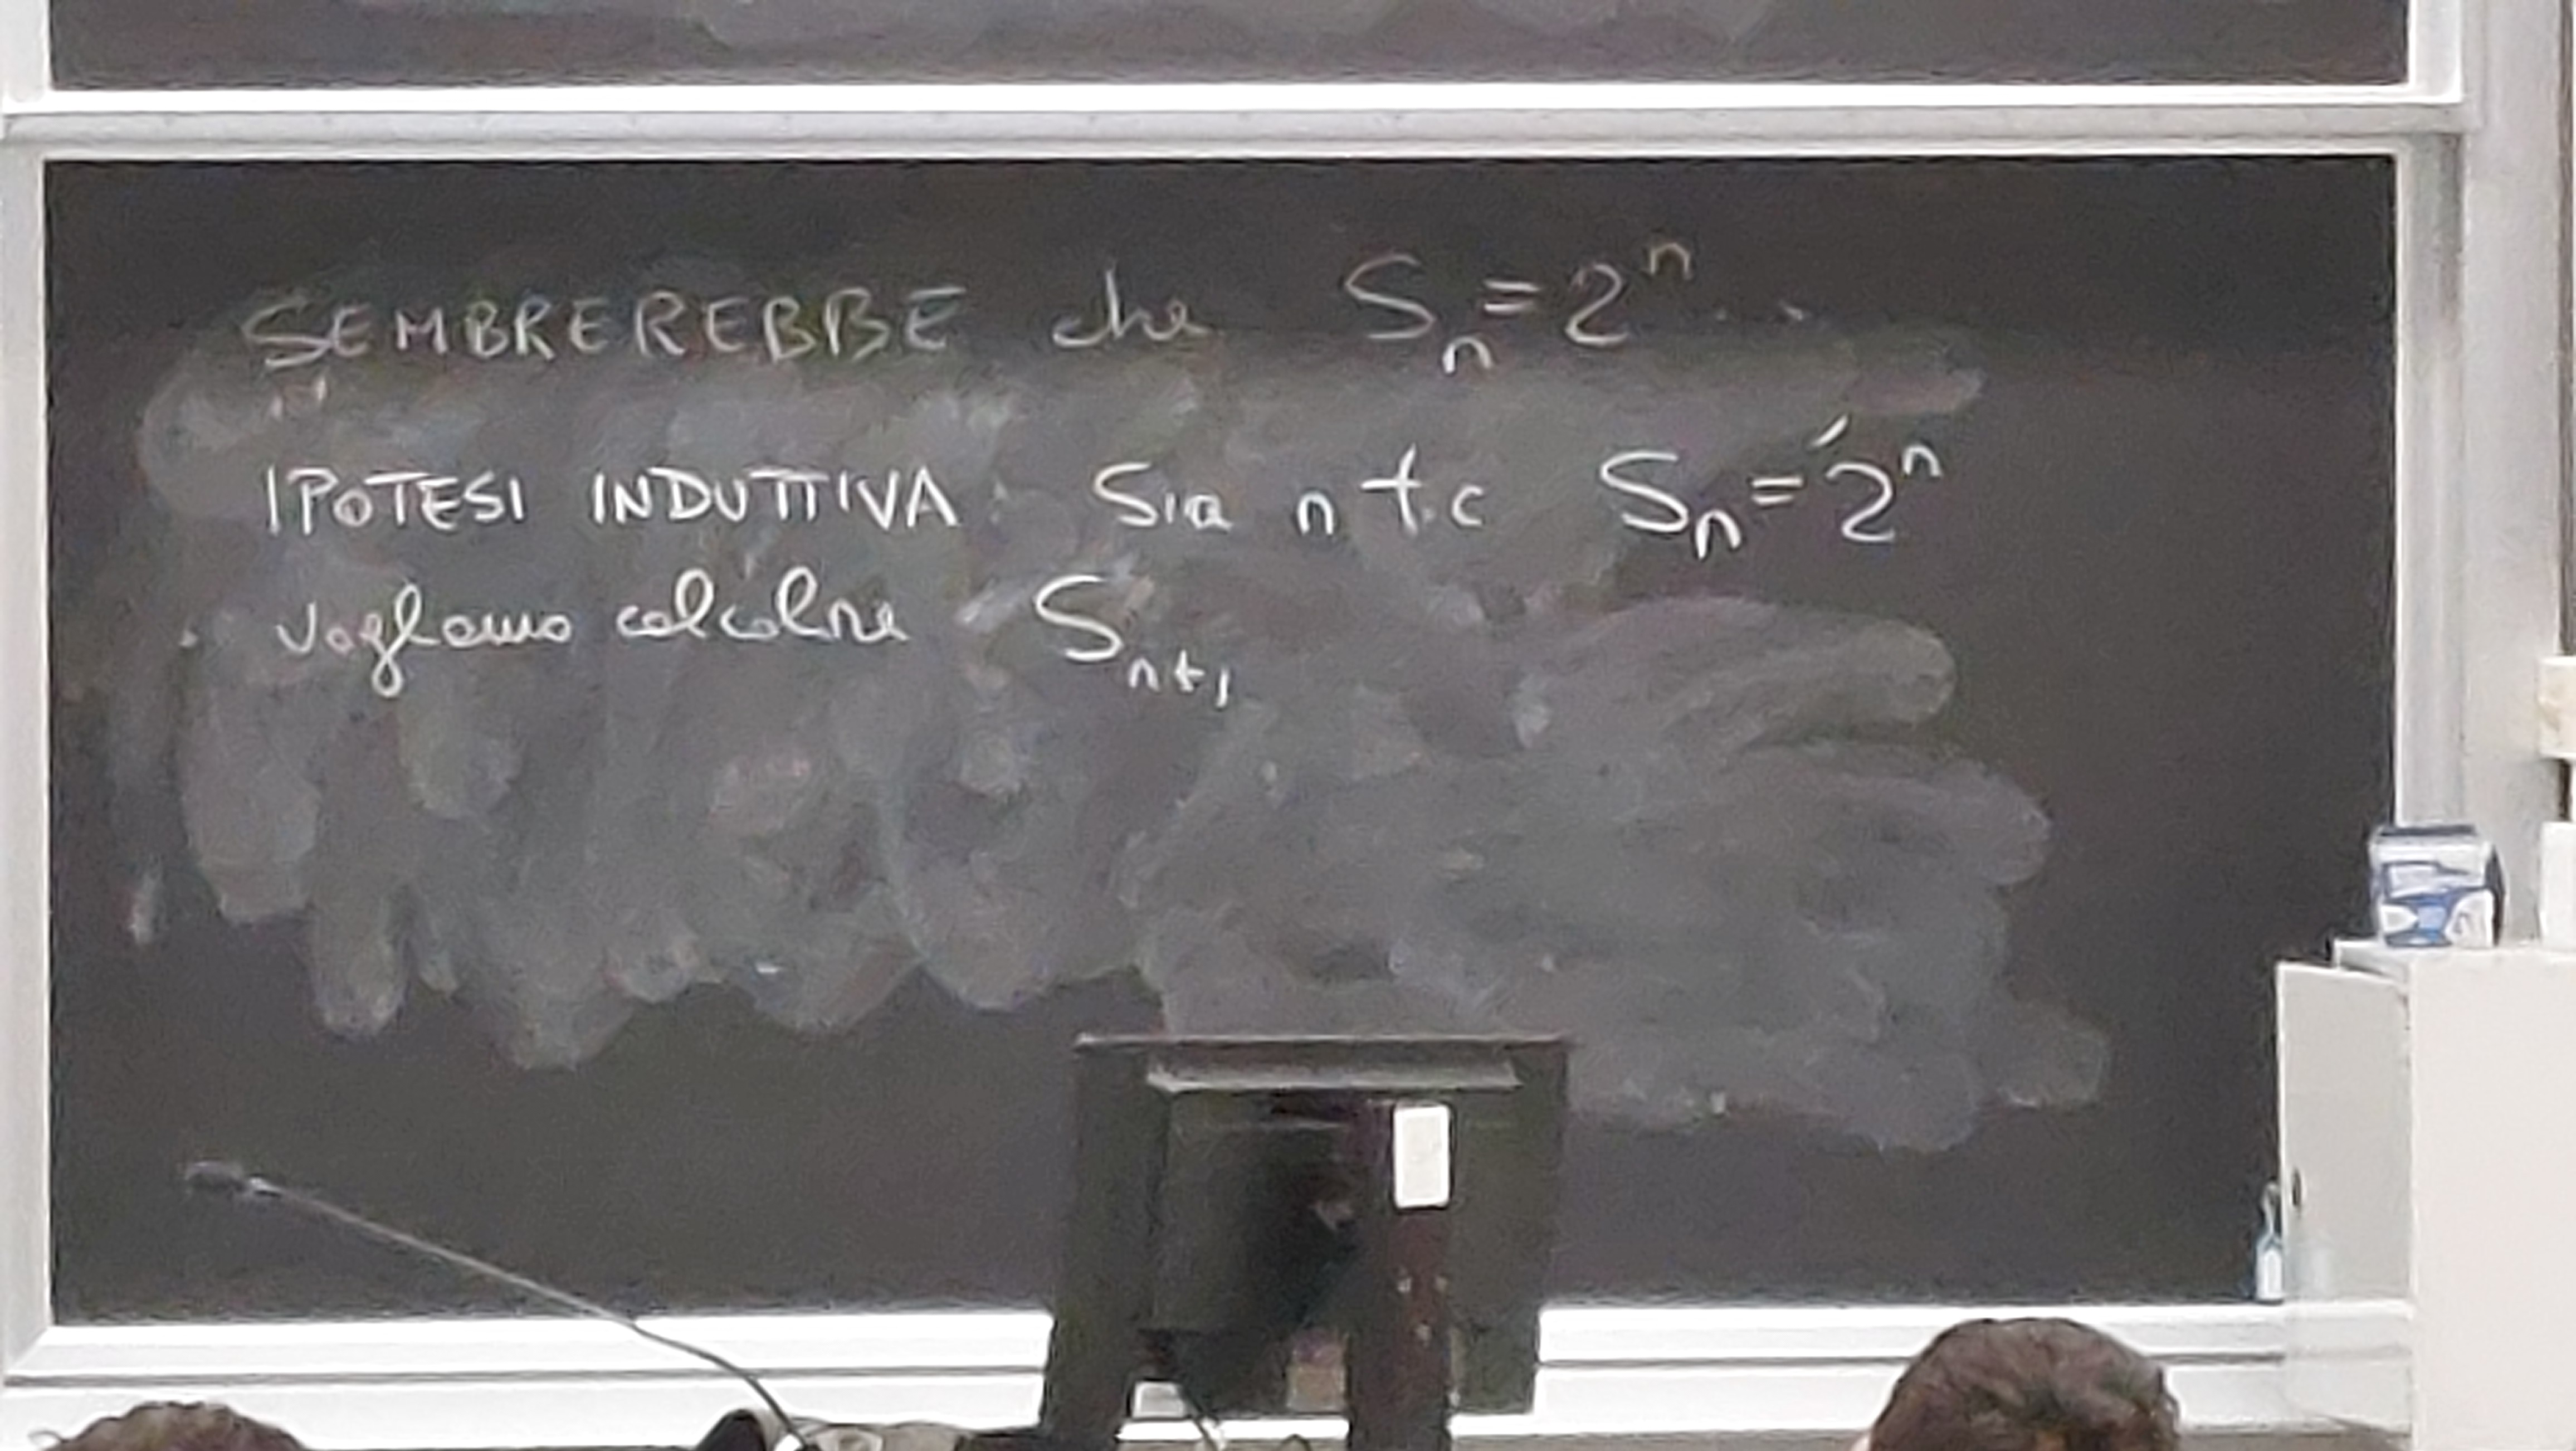 SEMBREREBBE che Sₙ = 2ⁿ ...
IPOTESI INDUTTIVA Sia n t.c Sₙ = 2ⁿ
vogliamo calcolare Sₙ₊₁